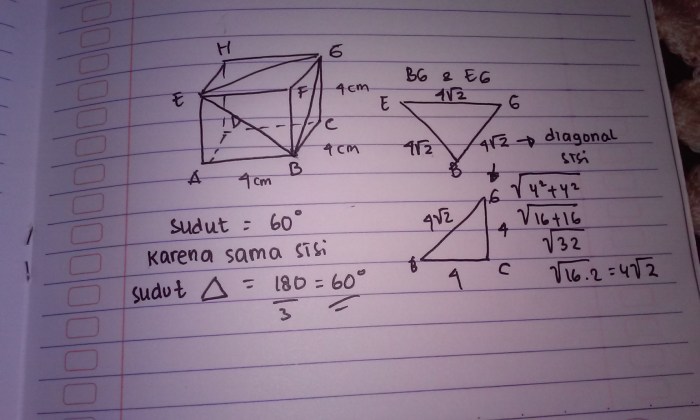 H
G
E
F
4cm
D
C
4cm
A
4cm
B
BG & EG
4√2
E
G
4√2
4√2 → diagonal
sisi
B
G
4√2
4
B
4
C
√4²+4²
√16+16
√32
√16.2 = 4√2
sudut = 60°
karena sama sisi
sudut △ = 180/3 = 60°